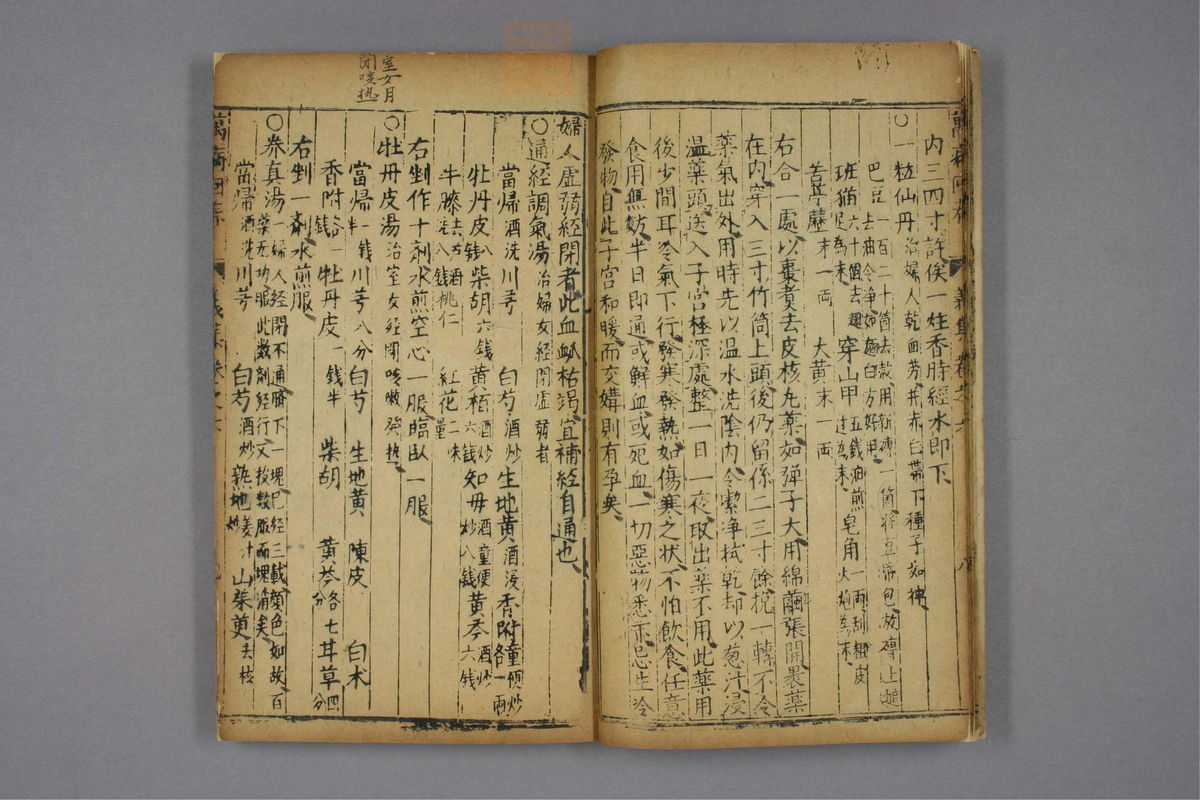 內三四寸許候一炷香時經水即下
○一粒仙丹 治婦人乾血芳并赤白帶下種子如神
巴豆 一百二十箇去殼用新磚一箇將豆帋包放磚上
去油令净如麵白方好用
班猫 六十個去翅足為末 穿山甲 五錢油煎过為末 皂角 一両刮粗皮火炮為末
苦葶藶 末一両 大黃 末一両
右合一處以棗煑去皮核丸藥如弹子大用綿繭張開裹藥
在內穿入三寸竹筒上頭後仍留係二三寸餘挽一轉不令
藥氣出外用時先以温水洗陰內令潔净拭乾却以葱汁浸
温藥頭送入子宮極深處整一日一夜取出藥不用此藥用
後少間耳冷氣下行發寒發熱如傷寒之状不怕飲食任意
食用無妨半日即通或鮮血或死血一切惡物悉下忌生冷
發物自此子宮和暖而交媾則有孕矣
婦人虛弱經閉者此血衇枯竭宜補經自通也
○通經調氣湯 治婦女經閉虛弱者
當歸 酒洗 川芎 白芍 酒炒 生地黃 酒浸 香附 童便炒各一兩
牡丹皮 八錢 柴胡 六錢 黃栢 酒炒六錢 知毋 酒童便炒八錢 黃芩 酒炒六錢
牛膝 去芦酒洗八錢 桃仁 紅花 二味量
右剉作十劑水煎空心一服臨臥一服
室女月
閉咳热
○牡丹皮湯 治室女經閉咳嗽發热
當歸 一錢半 川芎 八分 白芍 生地黃 陳皮 白术
香附 各一錢 牡丹皮 一錢半 柴胡 黃芩 各七分 甘草 四分
右剉一劑水煎服
○养真湯 一婦人經閉不通臍下一塊已經三載顏色如故百
藥无功服此数劑經行又投数服而塊消矣
當歸 酒洗 川芎 白芍 酒炒 熟地 姜汁炒 山茱萸 去核